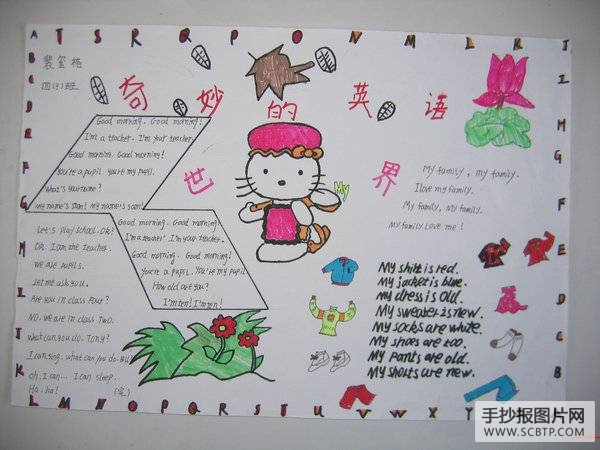 A T S R Q P O N M L K J
B C D E F G H I J K
I H G F E D C B
L M N O P Q R S T U V W X Y Z
四(3)班
奇妙的英语
世界
Good morning. Good morning!
I'm a teacher. I'm your teacher.
Good mornin. Good morning!
You're a pupil. you're my pupil.
What's your name?
My name's Sam! My name's Sam!
Good morning. Good morning.
I'm a teacher. I'm your teacher.
Good morning. Good morning!
You're a pupil. You're my pupil
How old are you?
I'm ten! I'm ten!
Let's play school. Ok?
OK. I am the teacher.
We are pupils.
Let me ask you.
Are you in class Four?
NO. we are in class Two.
what can you do. Tony?
I can sing. what can you do. Bill
oh. I can... I can sleep.
Ha. ha!
(完)
My
My family, my family.
I love my family.
My family, My family.
My family love me!
My shitt is red.
My jacket is blue.
My dress is old.
My sweater is new.
My socks are white.
My shoes are too.
My pants are old.
My shorts are new.
手抄报图片网
WWW.SCBTP.COM